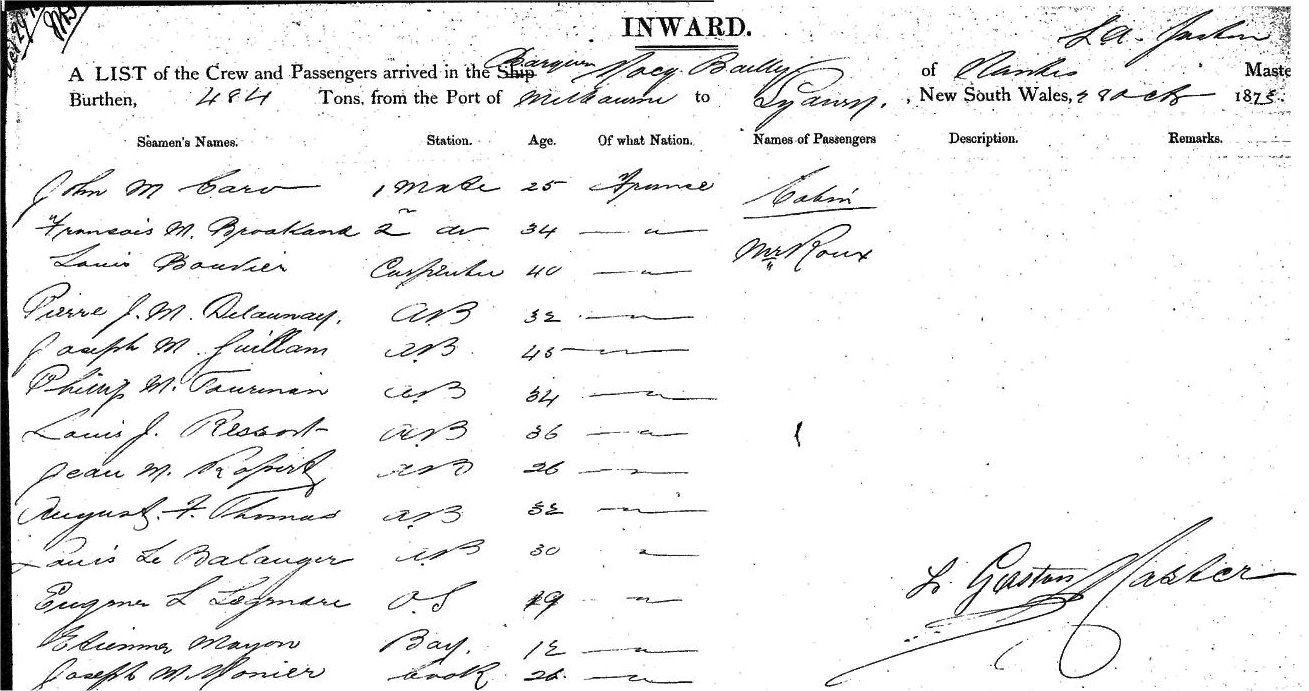 INWARD.
A LIST of the Crew and Passengers arrived in the Ship Barque Bailly of Nantes Maste
Burthen, 484 Tons, from the Port of Melbourne to Sydney, New South Wales, 28 Oct 1875.
Seamen's Names. Station. Age. Of what Nation. Names of Passengers Description. Remarks.
John M Caro 1 Mate 25 France Cabin
Francois M. 2 do 34 — " — Mr Roux
Louis Boudier Carpenter 40 — " —
Pierre J. M. Delaunay. AB 32 — " —
Joseph M. Guillam AB 45 — " —
Philip M. Tourman AB 34 — " —
Louis J. Ressort AB 36 — " —
Jean M. AB 26 — " —
August. F. Thomas AB 32 — " —
Louis Le Balanger AB 30 "
Eugene L O.S 19 — " —
Etienne Mayon Boy. 12 — " —
L. Gaston Master
Joseph M. Monier Cook 26 — " —